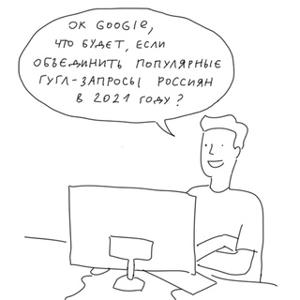 ОК GOOGLE,
ЧТО БУДЕТ, ЕСЛИ
ОБЪЕДИНИТЬ ПОПУЛЯРНЫЕ
ГУГЛ-ЗАПРОСЫ РОССИЯН
В 2021 ГОДУ?